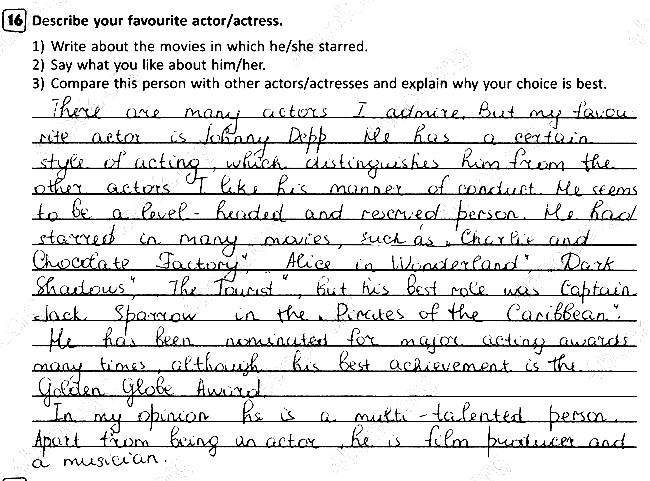 16 Describe your favourite actor/actress.
1) Write about the movies in which he/she starred.
2) Say what you like about him/her.
3) Compare this person with other actors/actresses and explain why your choice is best.
There are many actors I admire. But my favou
rite actor is Johnny Depp. He has a certain
style of acting, which distinguishes him from the
other actors. I like his manner of conduct. He seems
to be a level-headed and reserved person. He had
starred in many movies, such as „Charlie and
Chocolate Factory", Alice in Wonderland", Dark
Shadows", The Tourist", but his best role was Captain
Jack Sparrow in the „Pirates of the Caribbean".
He has been nominated for major acting awards
many times, although his best achievement is the
Golden Globe Award.
In my opinion he is a multi-talented person.
Apart from being an actor, he is film producer and
a musician.